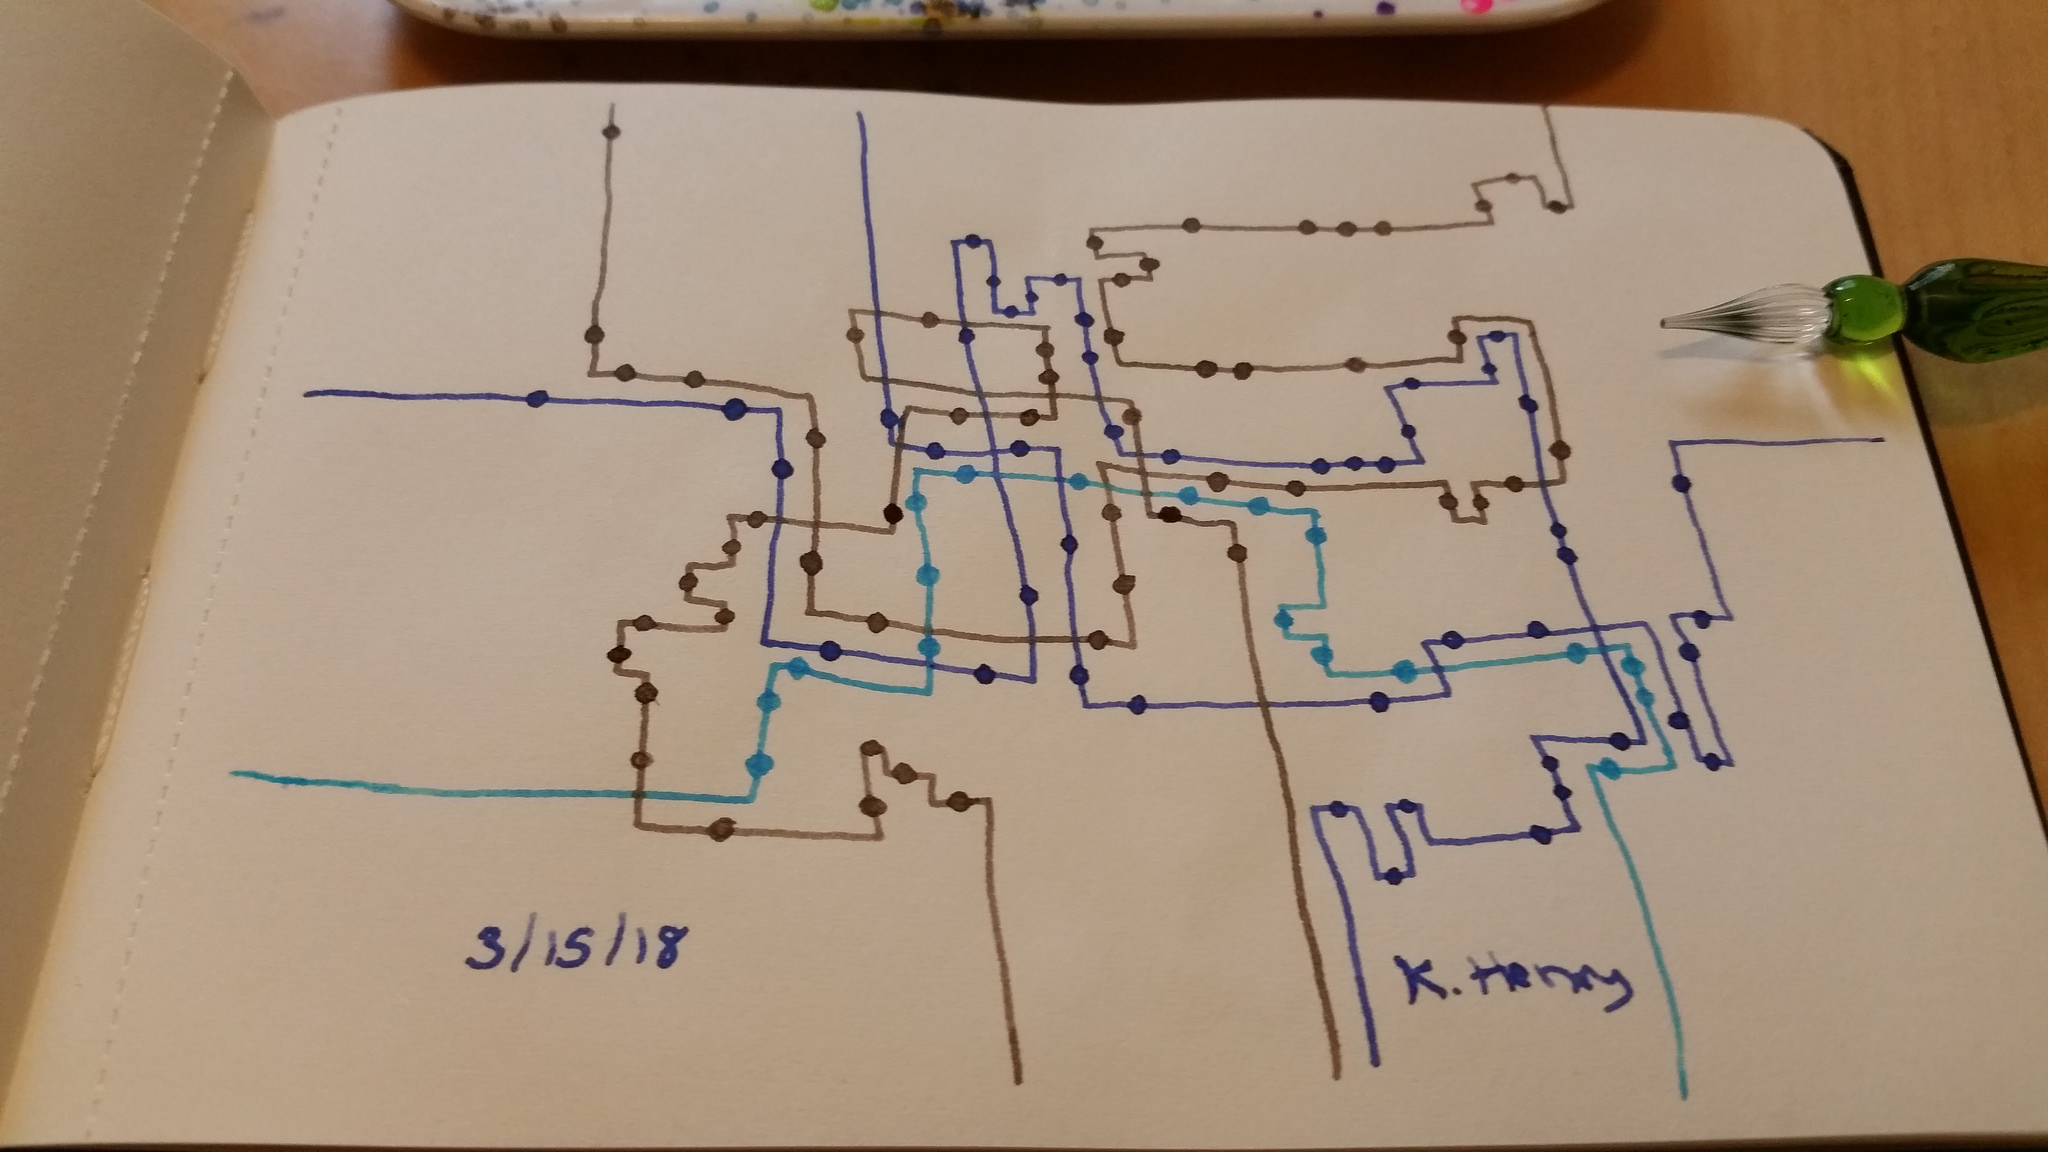 3/15/18
K. Henry